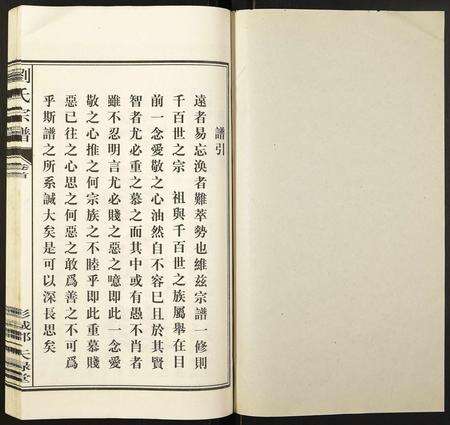 譜引
遠者易忘渙者難萃勢也維茲宗譜一修則
千百世之宗 祖與千百世之族屬舉在目
前一念愛敬之心油然自不容已且於其賢
智者尤必重之慕之而其中或有愚不肖者
雖不忍明言尤必賤之惡之噫即此一念愛
敬之心推之何宗族之不睦乎即此重慕賤
惡已往之心思之何惡之敢爲善之不可爲
乎斯譜之所系誠大矣是可以深長思矣
劉氏宗譜
卷首
彭城郡